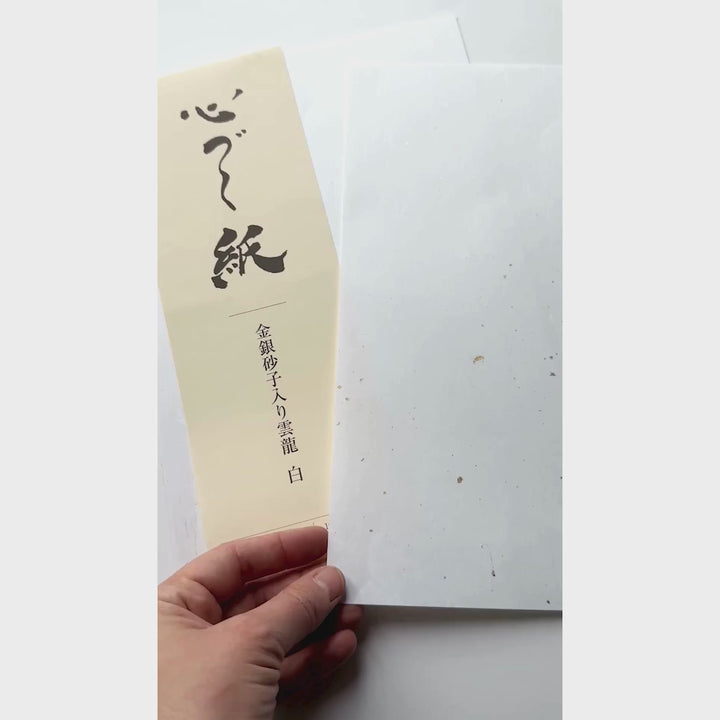 心づく紙
金銀砂子入り雲龍 白